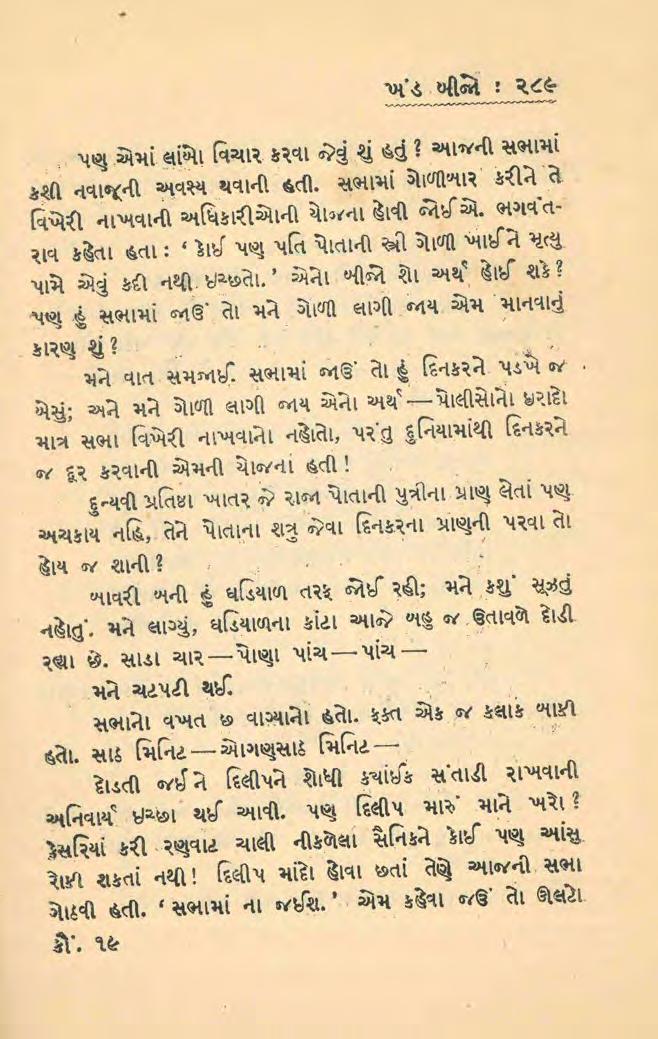 ખંડ બીજો : ૨૮૯
પણ એમાં લાંબો વિચાર કરવા જેવું શું હતું ? આજની સભામાં
કશી નવાજૂની અવશ્ય થવાની હતી. સભામાં ગોળીબાર કરીને તે
વિખેરી નાખવાની અધિકારીઓની યોજના હોવી જોઈએ. ભગવંત-
રાવ કહેતા હતા : ‘ કોઈ પણ પતિ પોતાની સ્ત્રી ગોળી ખાઈને મૃત્યુ
પામે એવું કદી નથી ઇચ્છતો.’ એનો બીજો શો અર્થ હોઈ શકે ?
પણ હું સભામાં જાઉં તો મને ગોળી લાગી જાય એમ માનવાનું
કારણ શું ?
મને વાત સમજાઈ. સભામાં જાઉં તો હું દિનકરને પડખે જ
બેસું; અને મને ગોળી લાગી જાય એનો અર્થ — પોલીસોનો ઇરાદો
માત્ર સભા વિખેરી નાખવાનો નહોતો, પરંતુ દુનિયામાંથી દિનકરને
જ દૂર કરવાની એમની યોજના હતી !
દુન્યવી પ્રતિષ્ઠા ખાતર જે રાજા પોતાની પુત્રીના પ્રાણ લેતાં પણ
અચકાય નહિ, તેને પોતાના શત્રુ જેવા દિનકરના પ્રાણની પરવા તો
હોય જ શાની ?
બાવરી બની હું ઘડિયાળ તરફ જોઈ રહી; મને કશું સૂઝતું
નહોતું. મને લાગ્યું, ઘડિયાળના કાંટા આજે બહુ જ ઉતાવળે દોડી
રહ્યા છે. સાડા ચાર — પોણા પાંચ — પાંચ —
મને ચટપટી થઈ.
સભાનો વખત છ વાગ્યાનો હતો. ફક્ત એક જ કલાક બાકી
હતો. સાઠ મિનિટ — ઓગણસાઠ મિનિટ —
દોડતી જઈને દિલીપને શોધી ક્યાંઈક સંતાડી રાખવાની
અનિવાર્ય ઇચ્છા થઈ આવી. પણ દિલીપ મારું માને ખરો ?
કેસરિયાં કરી રણવાટ ચાલી નીકળેલા સૈનિકને કોઈ પણ આંસુ
રોકી શકતાં નથી ! દિલીપ માંદો હોવા છતાં તેણે આજની સભા
ગોઠવી હતી. ‘ સભામાં ના જઈશ. ’ એમ કહેવા જઉં તો ઊલટો
કૌં. ૧૯